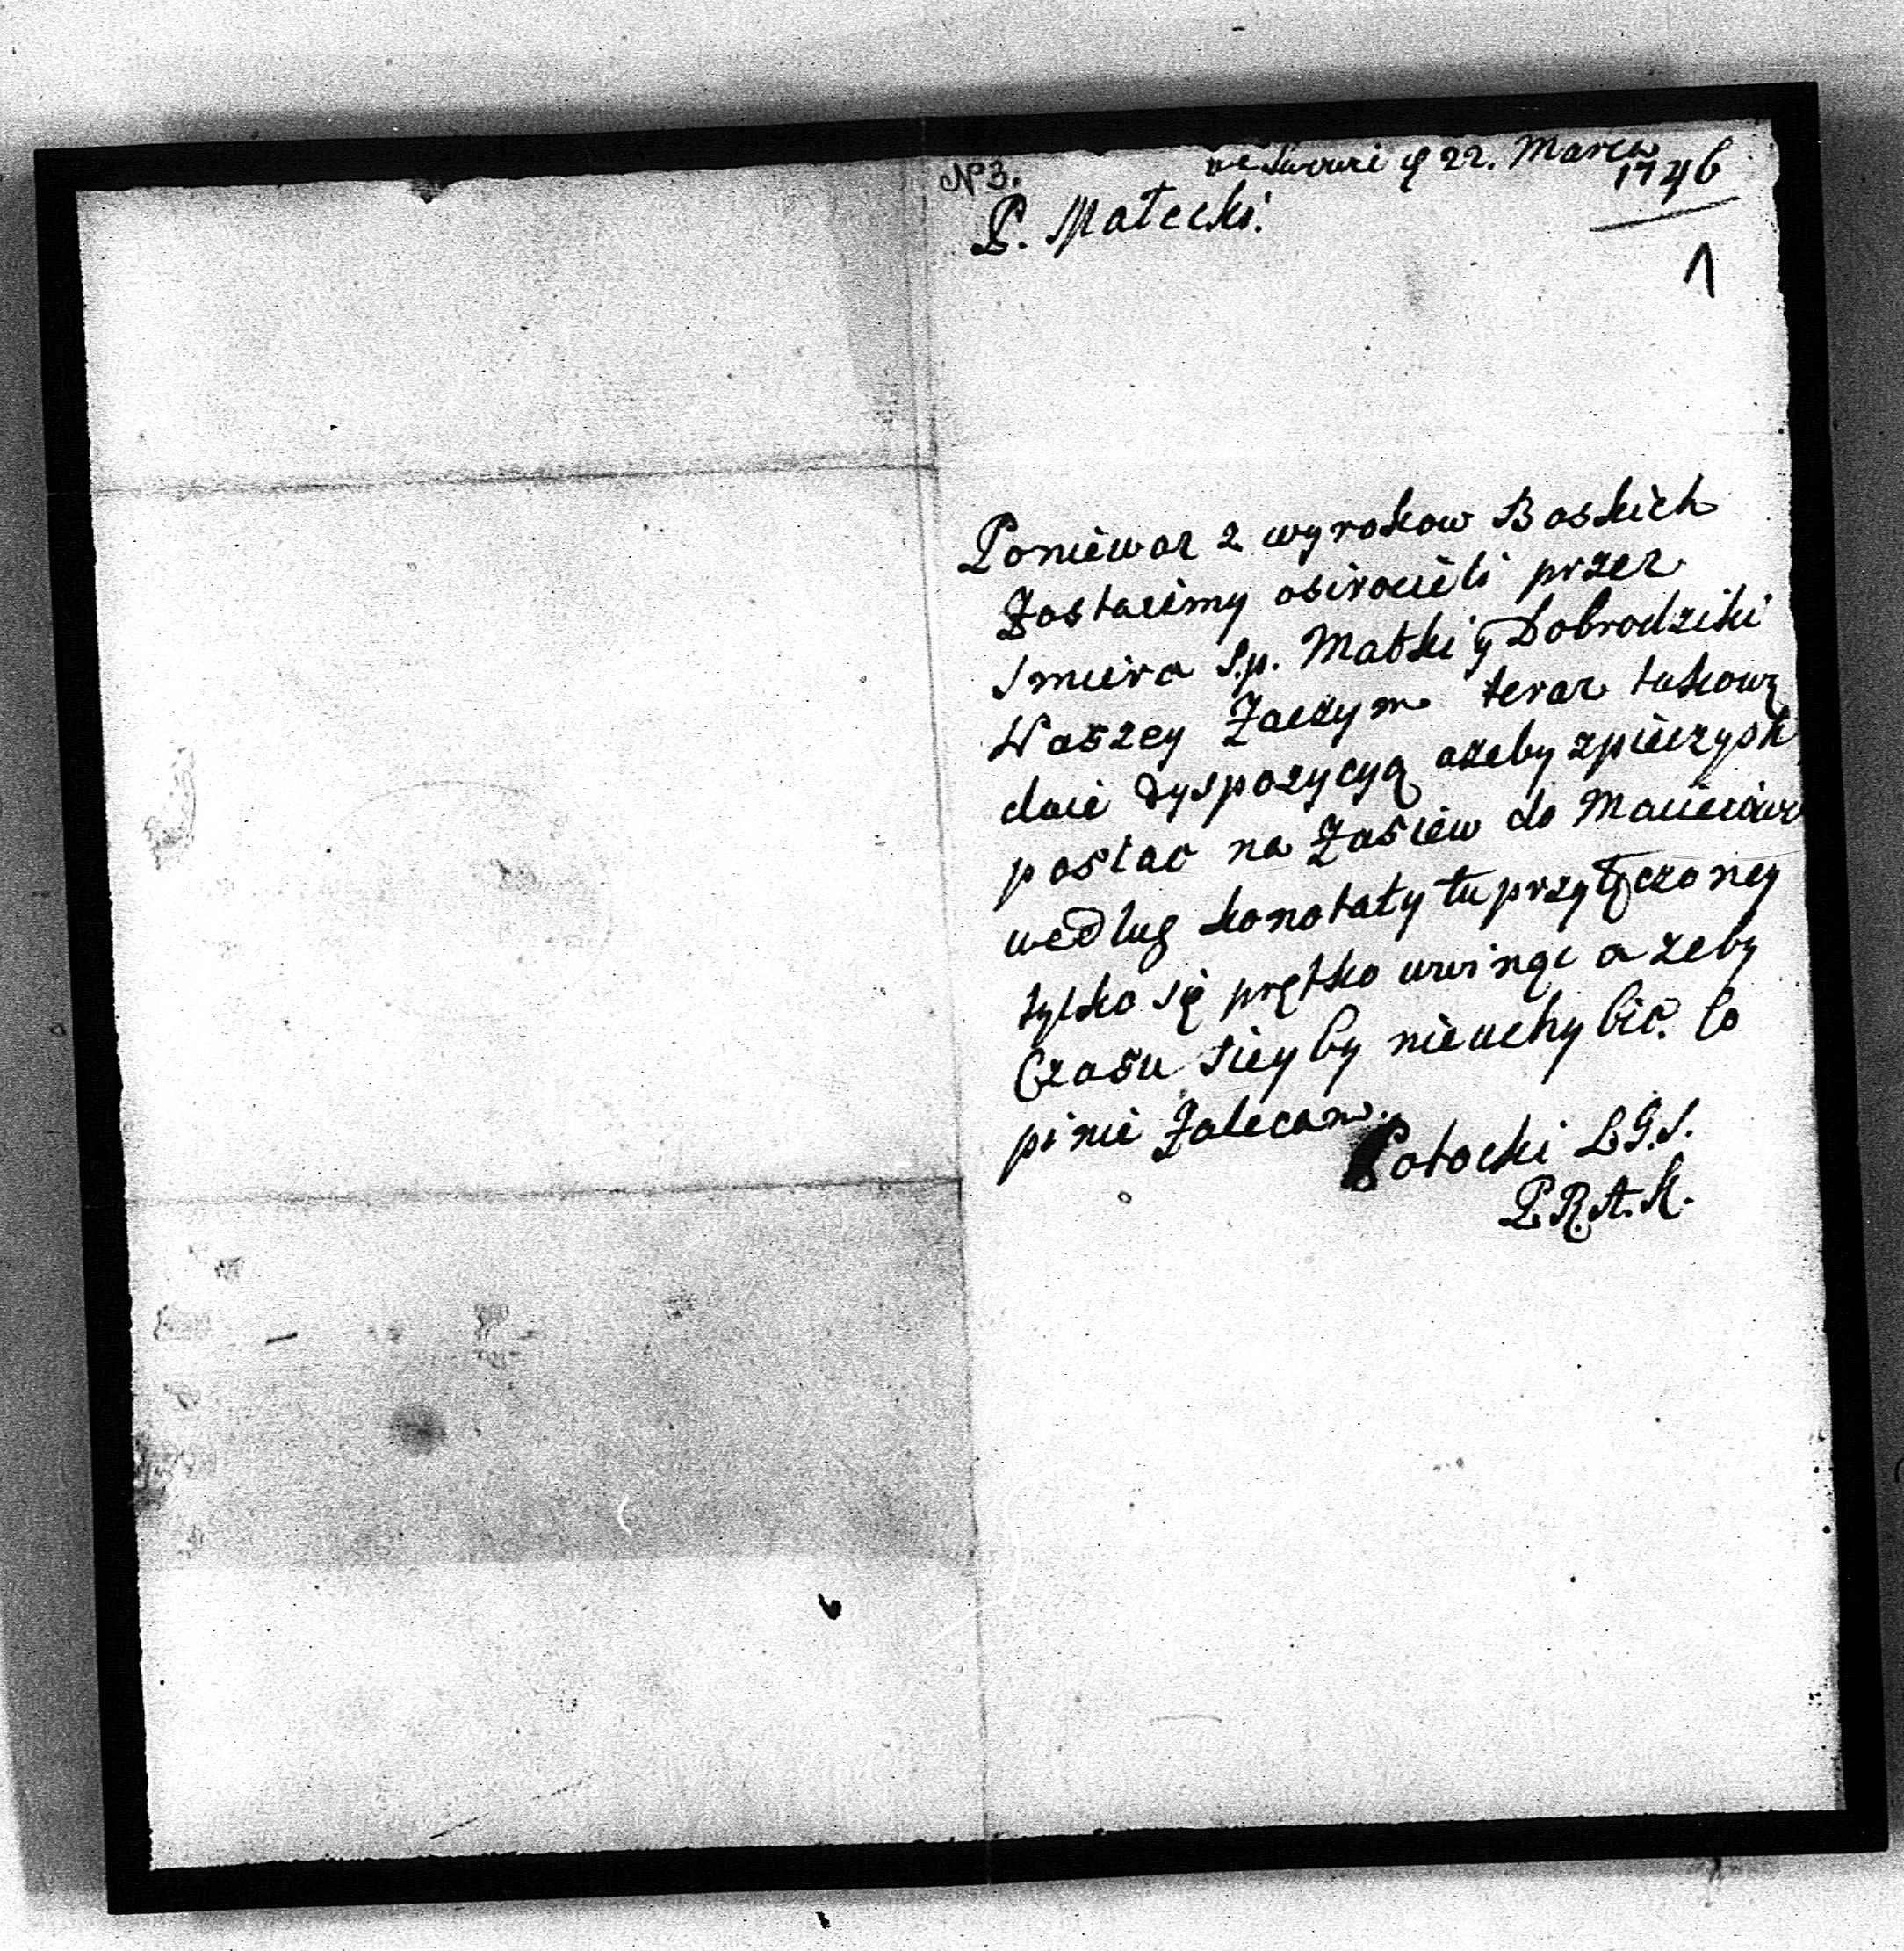 N 3.
22. Marca
1746
P. Małecki.
1
Poniewaz z wyrokow Boskich
Zostalismy osirocieli przez
Smierc S.p. Matki y Dobrodziki
Waszey Zaczym teraz takową
daie dyspozycyą azeby zpieczysk
posłac na Zasiew do
według konotaty tu przyłączoney
tylko się prętko uwinąc azeby
Czasu sieyby nieuchybic. to
pinie Zalecam.
Potocki S.G.S.
P.R.A.K.